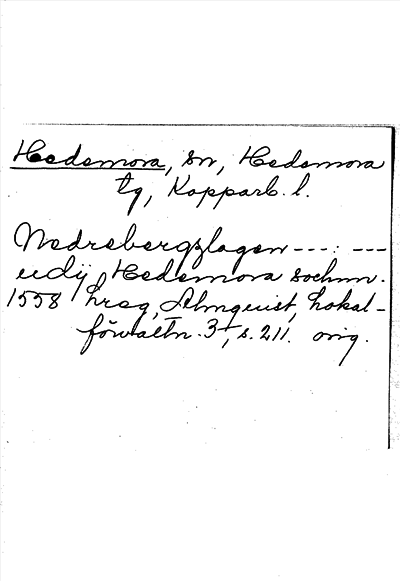 Hedemora, sn, Hedemora
tg, Kopparb. l.
Nedrebergzlagen ---: ---
udij Hedemora sochnn.
1558 hreg, Almquist, Lokal-
förvaltn. 3, s. 211. orig.